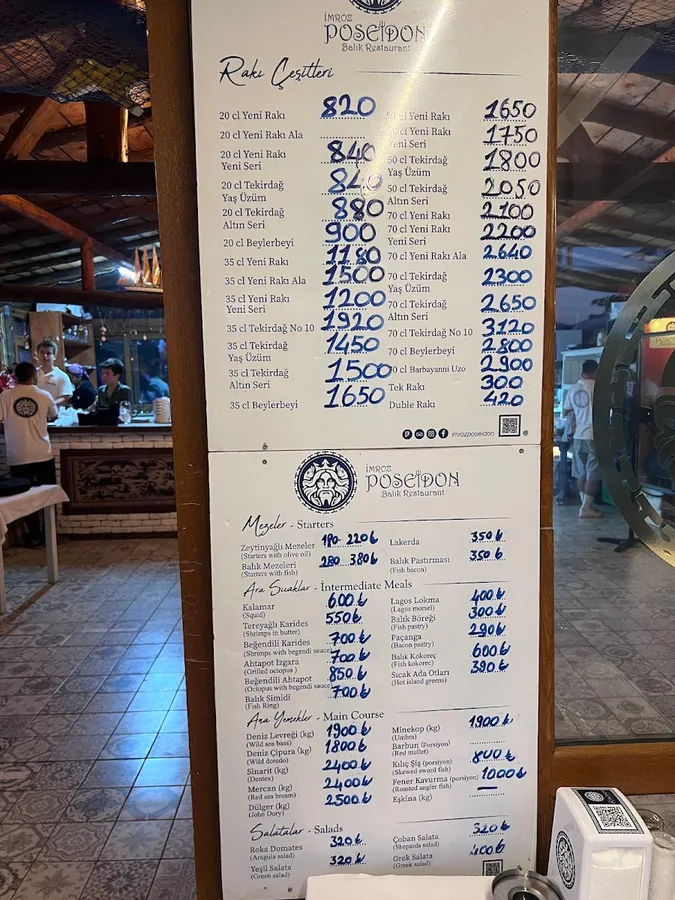 İMROZ
POSEİDON
Balık Restaurant
Rakı Çeşitleri
20 cl Yeni Rakı 820
20 cl Yeni Rakı Ala
20 cl Yeni Rakı 840
Yeni Seri
20 cl Tekirdağ 840
Yaş Üzüm
20 cl Tekirdağ 880
Altın Seri
20 cl Beylerbeyi 900
35 cl Yeni Rakı 1180
35 cl Yeni Rakı Ala 1500
35 cl Yeni Rakı 1200
Yeni Seri
35 cl Tekirdağ No 10 1920
35 cl Tekirdağ 1450
Yaş Üzüm
35 cl Tekirdağ 1500
Altın Seri
35 cl Beylerbeyi 1650
50 cl Yeni Rakı 1650
50 cl Yeni Rakı 1750
Yeni Seri
50 cl Tekirdağ 1800
Yaş Üzüm
50 cl Tekirdağ 2050
Altın Seri
70 cl Yeni Rakı 2100
70 cl Yeni Rakı 2200
Yeni Seri
70 cl Yeni Rakı Ala 2640
70 cl Tekirdağ 2300
Yaş Üzüm
70 cl Tekirdağ 2650
Altın Seri
70 cl Tekirdağ No 10 3120
70 cl Beylerbeyi 2800
70 cl Barbayanni Uzo 2900
Tek Rakı 300
Duble Rakı 420
imrozposeidon
İMROZ
POSEİDON
Balık Restaurant
Mezeler - Starters
Zeytinyağlı Mezeler 180-220₺
(Starters with olive oil)
Balık Mezeleri 280-380₺
(Starters with fish)
Lakerda 350₺
Balık Pastırması 350₺
(Fish bacon)
Ara Sıcaklar - Intermediate Meals
Kalamar 600₺
(Squid)
Tereyağlı Karides 550₺
(Shrimps in butter)
Beğendili Karides 700₺
(Shrimps with begendi sauce)
Ahtapot Izgara 700₺
(Grilled octopus)
Beğendili Ahtapot 850₺
(Octopus with begendi sauce)
Balık Simidi 700₺
(Fish Ring)
Lagos Lokma 400₺
(Lagos morsel)
Balık Böreği 300₺
(Fish pastry)
Paçanga 290₺
(Bacon pastry)
Balık Kokoreç 600₺
(Fish kokorec)
Sıcak Ada Otları 390₺
(Hot island greens)
Ana Yemekler - Main Course
Deniz Levreği (kg) 1900₺
(Wild sea bass)
Deniz Çipura (kg) 1800₺
(Wild doredo)
Sinarit (kg) 2400₺
(Dentex)
Mercan (kg) 2400₺
(Red sea bream)
Dülger (kg) 2500₺
(John Dory)
Minekop (kg) 1900₺
(Umbra)
Barbun (Porsiyon)
(Red mullet)
Kılıç Şiş (porsiyon) 800₺
(Skewed sword fish)
Fener Kavurma (porsiyon) 1000₺
(Roasted angler fish)
Eşkina (kg) —
Salatalar - Salads
Roka Domates 320₺
(Aragula salad)
Yeşil Salata 320₺
(Green salad)
Çoban Salata 320₺
(Shepards salad)
Grek Salata 400₺
(Greek salad)